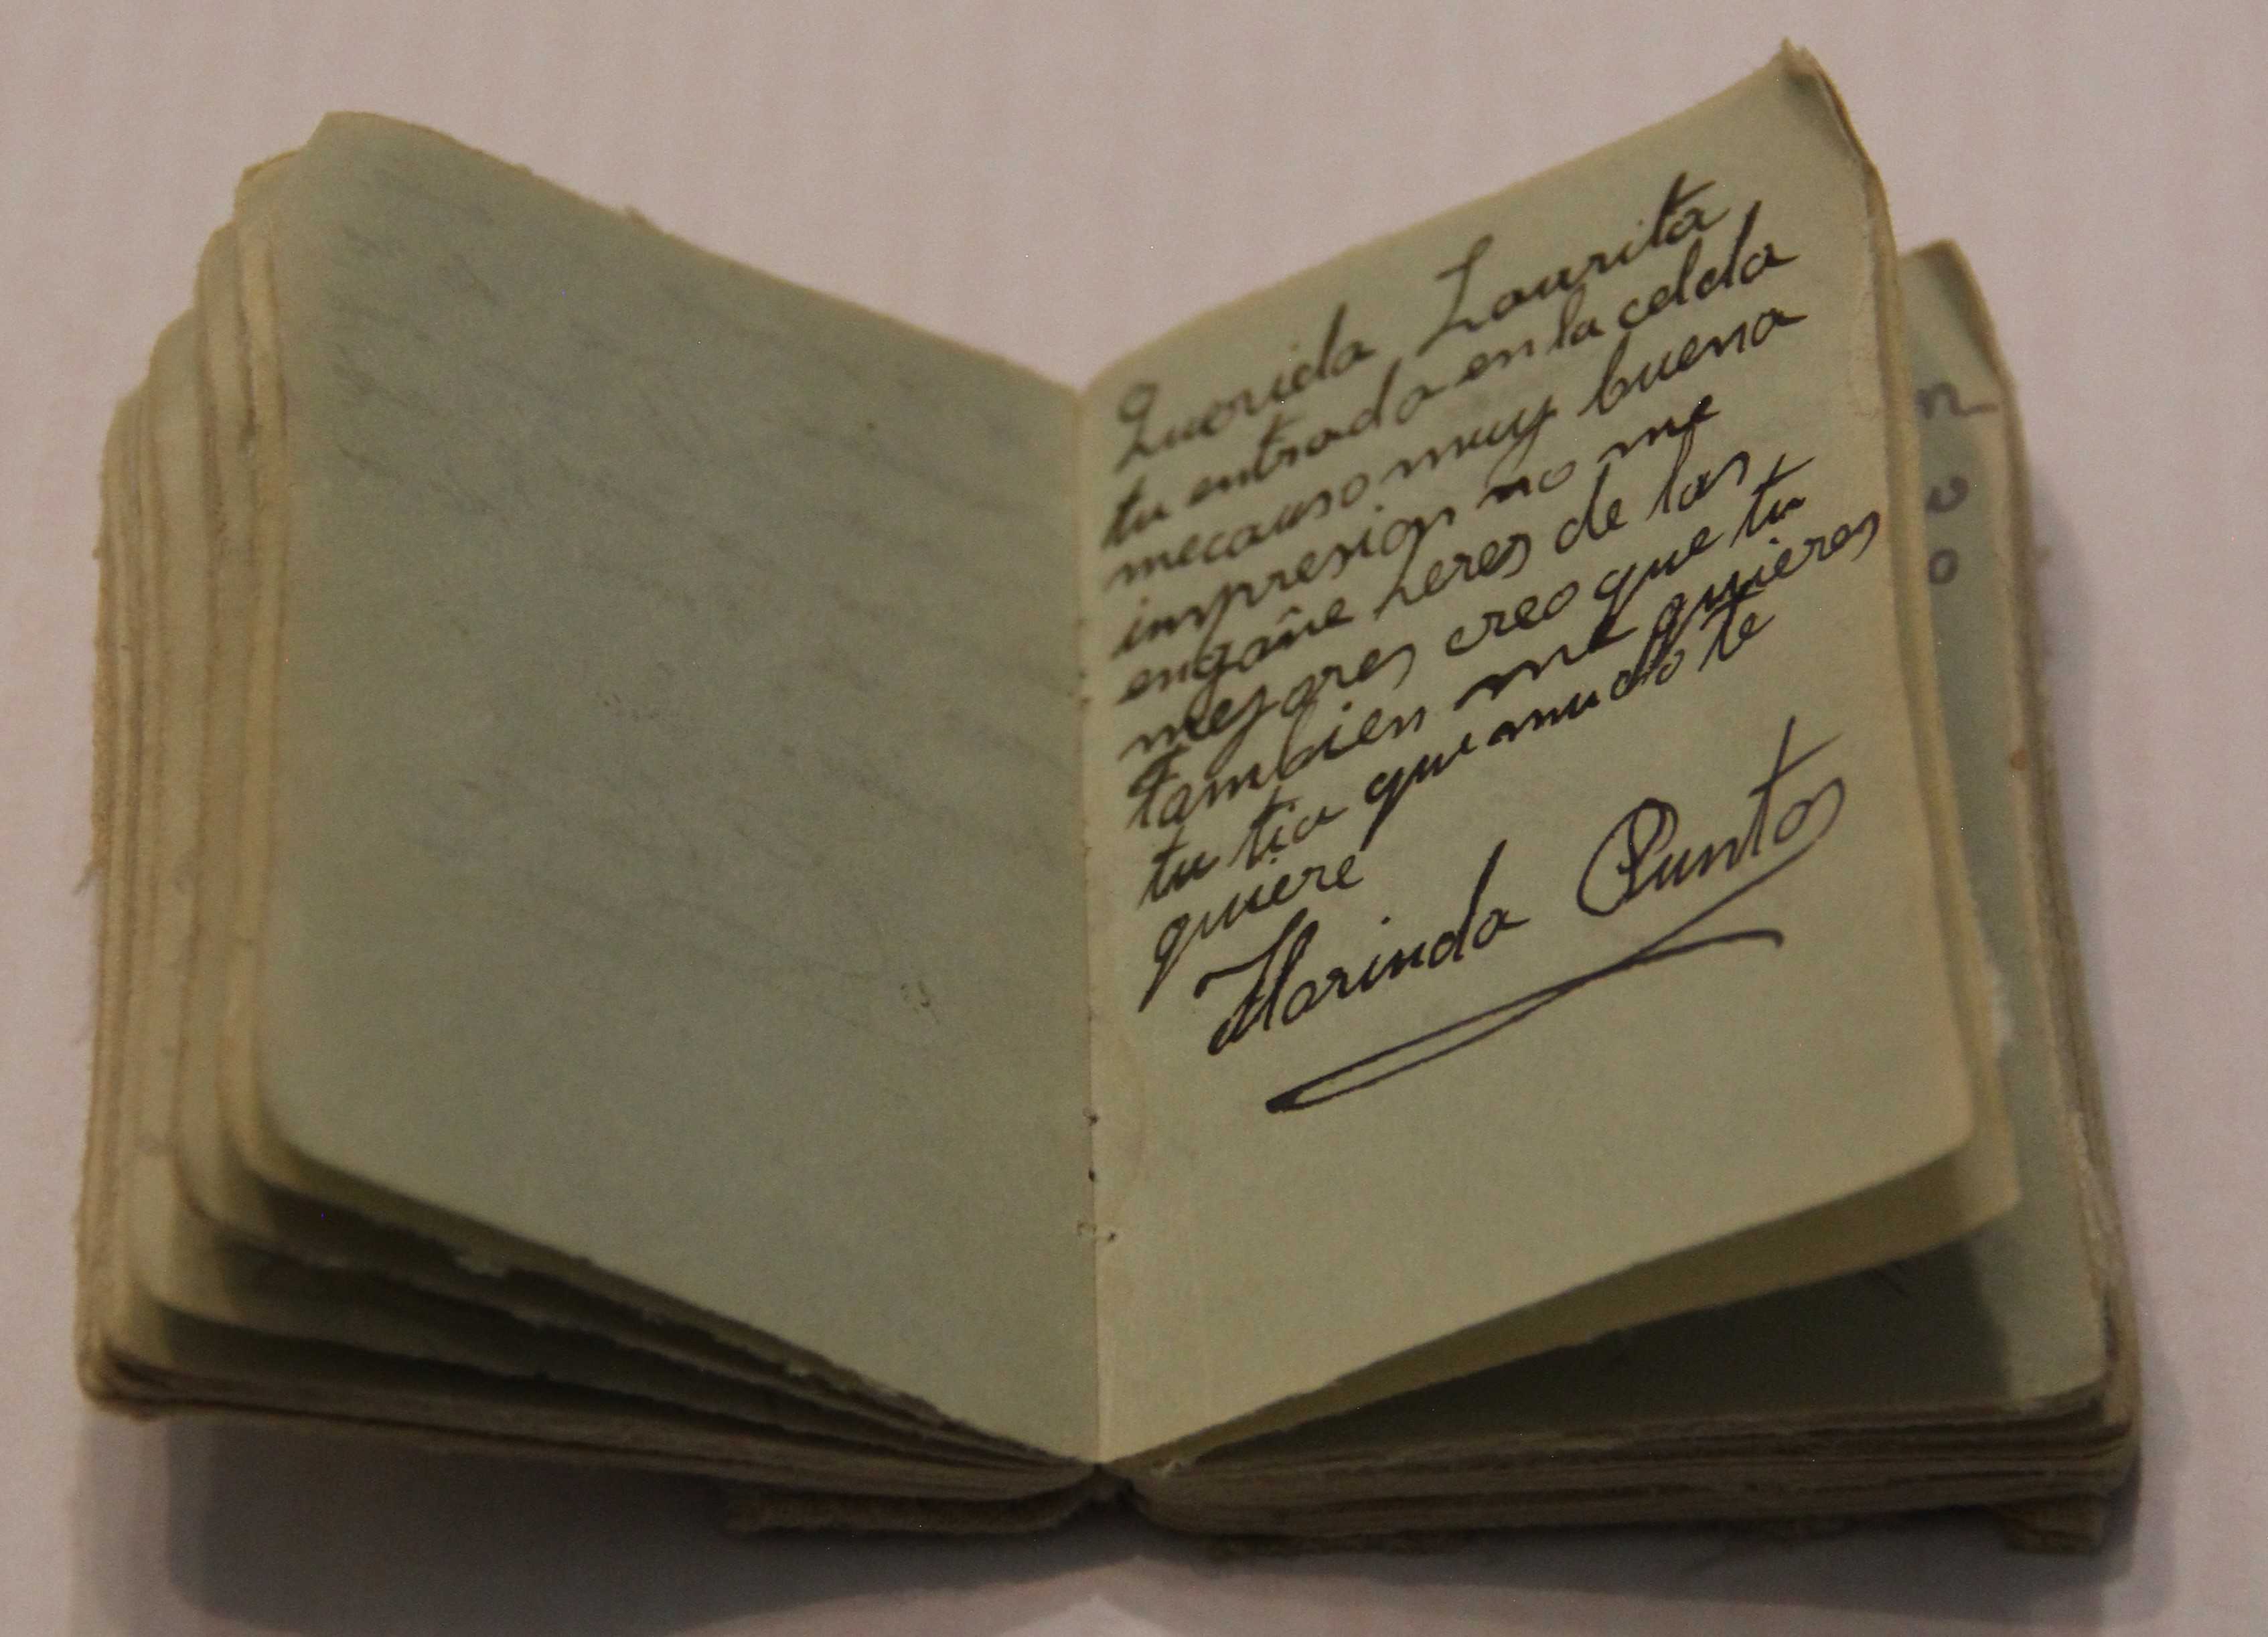 Querida Laurita
tu entrada en la celda
mecauso muy buena
impresion no me
engañe heres de las
mejores creo que tu
tambien me quieres
tu tia que mucho te
quiere
Florinda Puntos
n
o